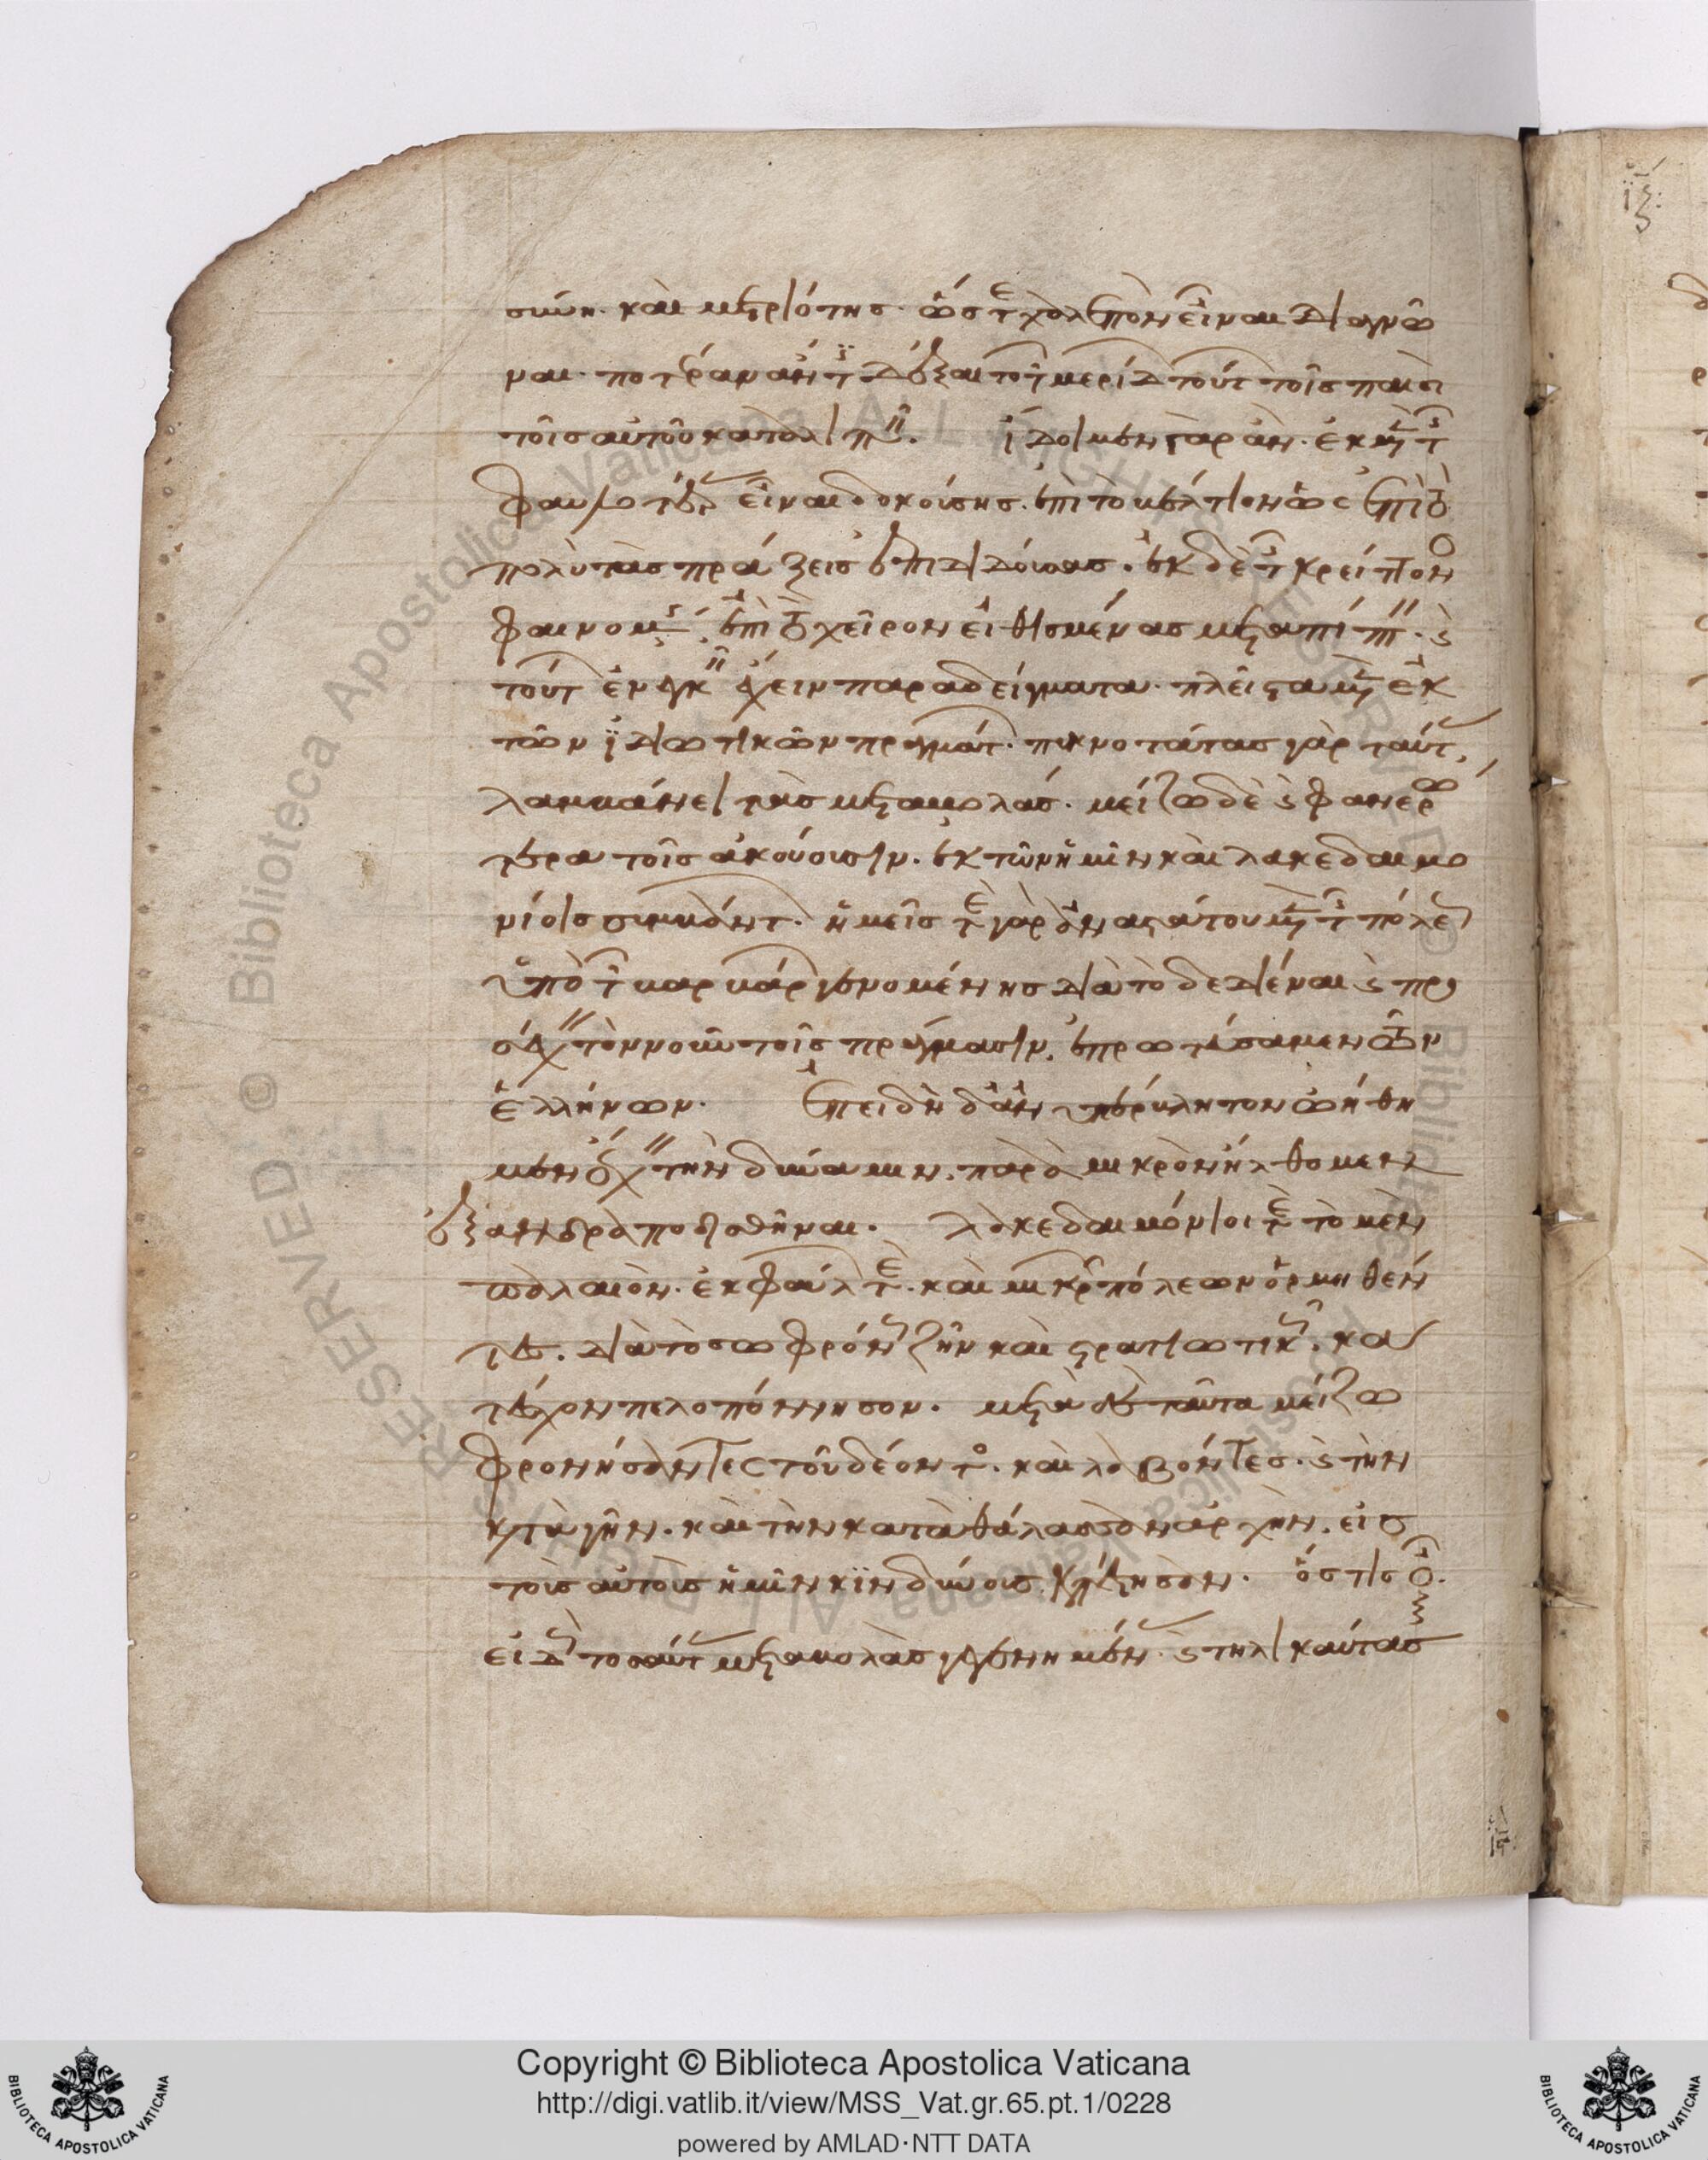 σύνη· καὶ μετριότης· ὥστε χαλεπὸν εἶναι διαγνῶ
ναι· ποτέραν ἄν τις δέξαιτο τῶν μερίδων τούτων τοῖς παισὶ
τοῖς αὑτοῦ καταλιπεῖν. ἴδοιμεν γὰρ ἄν· ἐκ μὲν τῆς
φαυλοτέρας εἶναι δοκούσης· ἐπὶ τὸ βέλτιον ὡς ἐπὶ τὸ
πολὺ τὰς πράξεις ἐπιδιδούσας· ἐκ δὲ τῆς κρείττονος
φαινομένης· ἐπὶ τὸ χεῖρον εἰθισμένας μεταπίπτειν· καὶ
τούτων ἐνεγκεῖν ἔχειν παραδείγματα· πλεῖστα μὲν ἐκ
τῶν ἰδιωτικῶν πραγμάτων· πυκνοτάτας γὰρ ταῦτα
λαμβάνει τὰς μεταβολάς· μείζω δὲ καὶ φανερώ
τερα τοῖς ἀκούουσιν· ἐκ τῶν ἡμῖν καὶ λακεδαιμο
νίοις συμβάντων· ἡμεῖς τε γὰρ ἀναστάτου μὲν τῆς πόλεως
ὑπὸ τῶν βαρβάρων γενομένης διὰ τὸ δεδιέναι καὶ προσ
έχειν τὸν νοῦν τοῖς πράγμασιν· ἐπρωτεύσαμεν τῶν
ἑλλήνων· ἐπειδὴ δ' ἀνυπέρβλητον ᾠήθη
μεν ἔχειν τὴν δύναμιν· παρὰ μικρὸν ἤλθομεν
ἐξανδραποδισθῆναι· λακεδαιμόνιοί τε τὸ μὲν
παλαιὸν· ἐκ φαύλων τε· καὶ μικρῶν πόλεων ὁρμηθέν
τες· διὰ τὸ σωφρόνως ζῆν καὶ στρατιωτικῶς· κα
τέσχον πελοπόννησον· μετὰ δὲ ταῦτα μεῖζω
φρονήσαντες τοῦ δέοντος· καὶ λαβόντες· καὶ τὴν
κατὰ γῆν· καὶ τὴν κατὰ θάλασσαν ἀρχὴν· εἰς
τοὺς αὐτοὺς ἡμῖν κινδύνους κατέστησαν· ὅστις οὖν·
εἰδὼς τοσαύτας μεταβολὰς γεγενημένας· καὶ τηλικαύτας